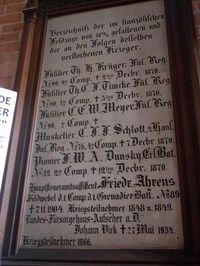 Verzeichniß der im französischen
Feldzuge von 18⁷⁰/₇₁ gefallenen und
der an den Folgen desselben
verstorbenen Krieger.
Füsilier Th. H. Krüger. Füs. Reg.
No 90. Comp. † Decbr. 1870.
Füsilier Th. C. F. Timcke Füs. Reg.
No 90. Comp. † 5 Decbr. 1870.
Füsilier C. C. W. Meyer Füs. Reg.
No 90. Comp. †
Musketier C. F. F. Schlott, 2 Hans.
Inf. Reg. No 76. Comp. † 7 Decbr. 1870.
Pionier F. W. A. Dunsky Ers. Bat.
Comp. † Decbr. 1870.
Friedr. Ahrens
Feldwebel d. 1. Comp. d. 1 Grenadier Batl. No 89
† 7.11.1904. Kriegsteilnehmer 1848 u. 1849.
Landes-Fürsorgehaus-Aufseher a. D.
Johann Vick † 27 Mai 1934.
Kriegsteilnehmer 1866.
DE
ER